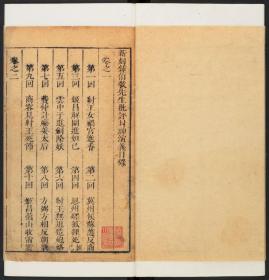 新刻鍾伯敬先生批評封神演義目錄
卷之一
第一回 紂王女媧宮進香
第二回 冀州侯蘇護反商
第三回 姬昌解圍進妲己
第四回 恩州驛狐狸死妲己
第五回 雲中子進劍除妖
第六回 紂王無道造炮烙
第七回 費仲計廢姜太后
第八回 方弼方相反朝歌
第九回 商容見紂王死節
第十回 姬昌燕山收雷震
卷之二